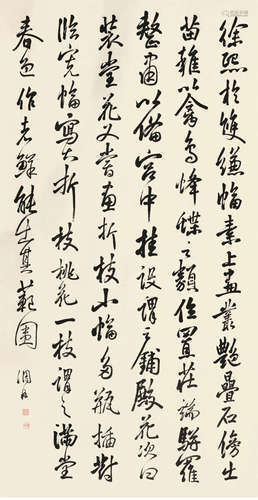 徐熙於雙縑幅素上畫叢艷疊石傍出
苗雜以禽鳥蜂蝶之類位置莊端駢羅
整肅以備宮中挂設謂之鋪殿花次曰
裝堂花又嘗畫折枝小幅多瓶插對
臨寬幅寫大折枝桃花一枝謂之滿堂
春色作者鮮能出其範圍